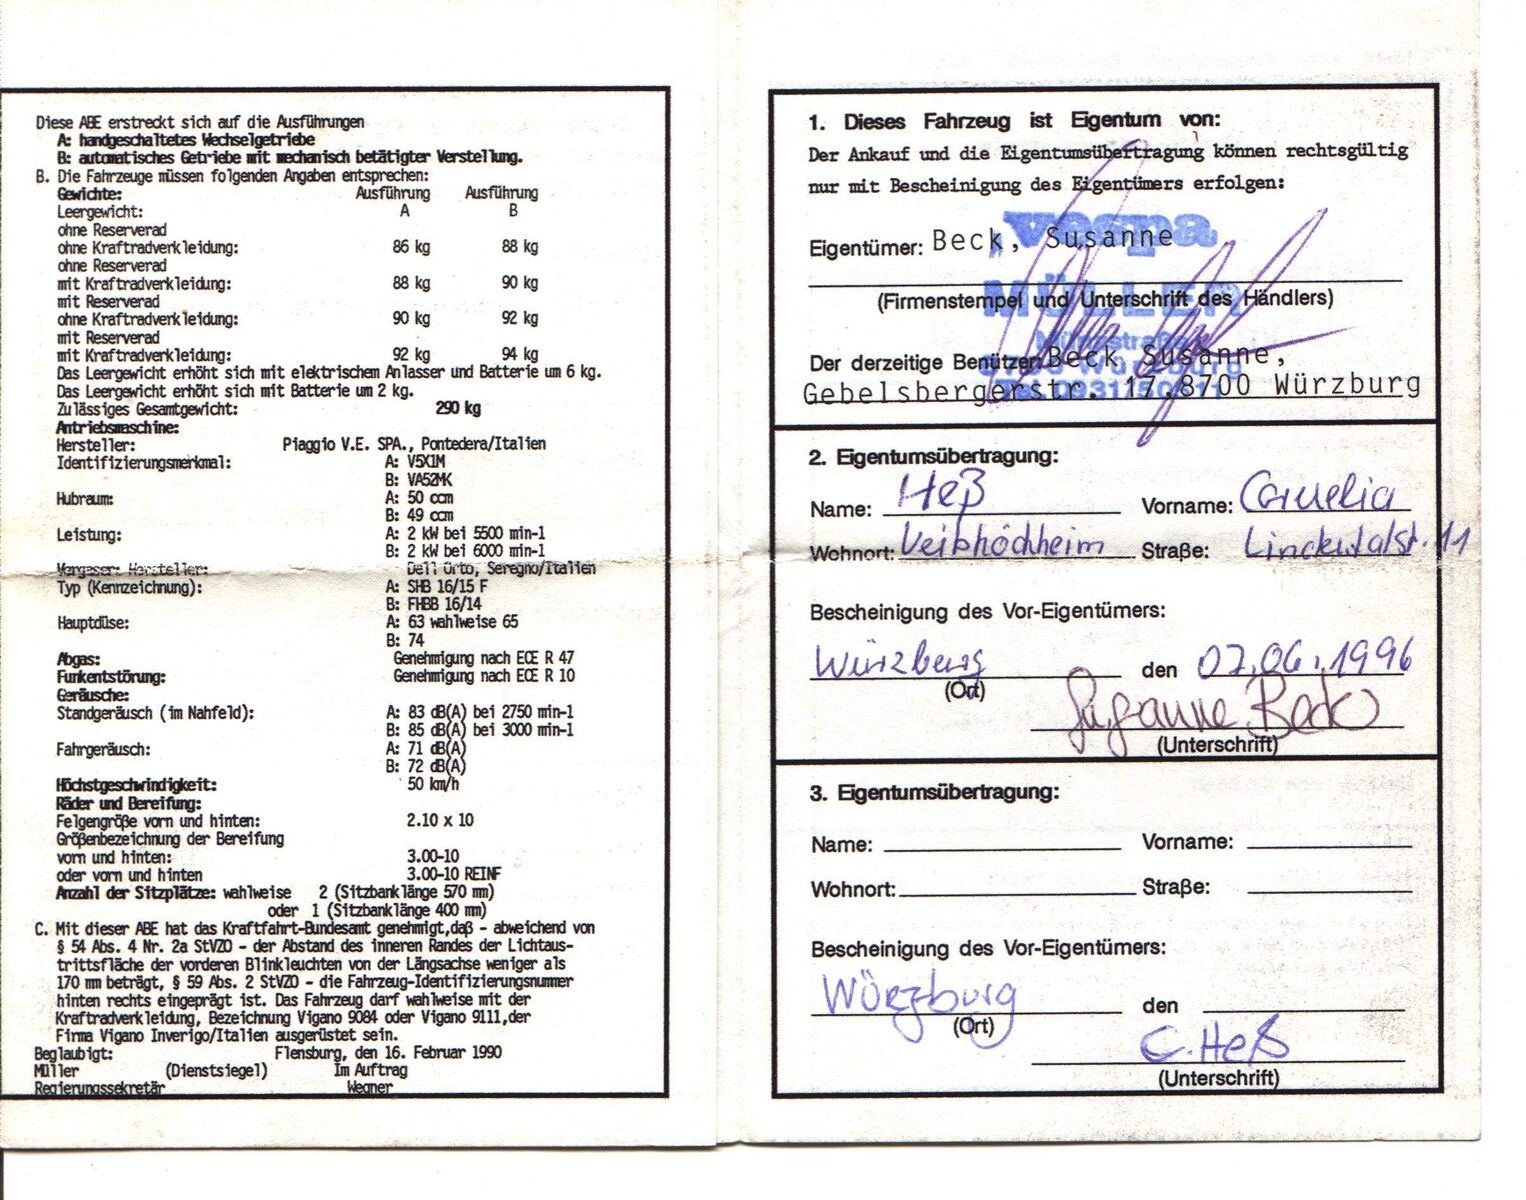 Diese ABE erstreckt sich auf die Ausführungen
A: handgeschaltetes Wechselgetriebe
B: automatisches Getriebe mit mechanisch betätigter Verstellung.
B. Die Fahrzeuge müssen folgenden Angaben entsprechen:
Gewichte: Ausführung Ausführung
Leergewicht: A B
ohne Reserverad
ohne Kraftradverkleidung: 86 kg 88 kg
ohne Reserverad
mit Kraftradverkleidung: 88 kg 90 kg
mit Reserverad
ohne Kraftradverkleidung: 90 kg 92 kg
mit Reserverad
mit Kraftradverkleidung: 92 kg 94 kg
Das Leergewicht erhöht sich mit elektrischem Anlasser und Batterie um 6 kg.
Das Leergewicht erhöht sich mit Batterie um 2 kg.
Zulässiges Gesamtgewicht: 290 kg
Antriebsmaschine:
Hersteller: Piaggio V.E. SPA., Pontedera/Italien
Identifizierungsmerkmal: A: V5X1M
B: VA52MK
Hubraum: A: 50 ccm
B: 49 ccm
Leistung: A: 2 kW bei 5500 min-1
B: 2 kW bei 6000 min-1
Vergaser: Hersteller: Dell Orto, Seregno/Italien
Typ (Kennzeichnung): A: SHB 16/15 F
B: FHBB 16/14
Hauptdüse: A: 63 wahlweise 65
B: 74
Abgas: Genehmigung nach ECE R 47
Funkentstörung: Genehmigung nach ECE R 10
Geräusche:
Standgeräusch (im Nahfeld): A: 83 dB(A) bei 2750 min-1
B: 85 dB(A) bei 3000 min-1
Fahrgeräusch: A: 71 dB(A)
B: 72 dB(A)
Höchstgeschwindigkeit: 50 km/h
Räder und Bereifung:
Felgengröße vorn und hinten: 2.10 x 10
Größenbezeichnung der Bereifung
vorn und hinten: 3.00-10
oder vorn und hinten 3.00-10 REINF
Anzahl der Sitzplätze: wahlweise 2 (Sitzbanklänge 570 mm)
oder 1 (Sitzbanklänge 400 mm)
C. Mit dieser ABE hat das Kraftfahrt-Bundesamt genehmigt,daß - abweichend von
§ 54 Abs. 4 Nr. 2a StVZO - der Abstand des inneren Randes der Lichtaus-
trittsfläche der vorderen Blinkleuchten von der Längsachse weniger als
170 mm beträgt, § 59 Abs. 2 StVZO - die Fahrzeug-Identifizierungsnummer
hinten rechts eingeprägt ist. Das Fahrzeug darf wahlweise mit der
Kraftradverkleidung, Bezeichnung Vigano 9084 oder Vigano 9111,der
Firma Vigano Inverigo/Italien ausgerüstet sein.
Beglaubigt: Flensburg, den 16. Februar 1990
Müller (Dienstsiegel) Im Auftrag
Regierungssekretär Wegner
1. Dieses Fahrzeug ist Eigentum von:
Der Ankauf und die Eigentumsübertragung können rechtsgültig
nur mit Bescheinigung des Eigentümers erfolgen:
vespa
Eigentümer: Beck, Susanne
MÜLLER
(Firmenstempel und Unterschrift des Händlers)
Der derzeitige Benützer: Beck Susanne,
Gebelsbergerstr. 17,8700 Würzburg
2. Eigentumsübertragung:
Name: Heß Vorname: Cornelia
Wohnort: Veitshöchheim Straße: Lindentalstr. 11
Bescheinigung des Vor-Eigentümers:
Würzburg den 07.06.1996
(Ort)
Susanne Beck
(Unterschrift)
3. Eigentumsübertragung:
Name: Vorname:
Wohnort: Straße:
Bescheinigung des Vor-Eigentümers:
Würzburg den
(Ort)
C. Heß
(Unterschrift)